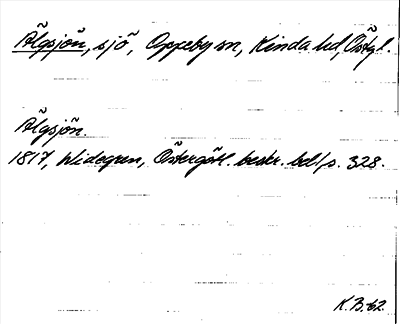 Älgsjön, sjö, Oppeby sn, Kinda hd, Östgl.
Älgsjön.
1817, Widegren, Östergötl. beskr. bd 1 s. 328.
K.B.62.